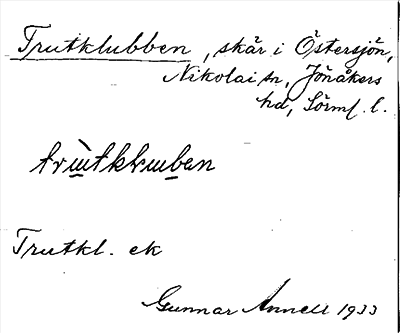 Trutklubben, skär i Östersjön,
Nikolai sn, Jönåkers
hd, Sörml. l.
trùtklubən
Trutkl. ek
Gunnar Annell 1933